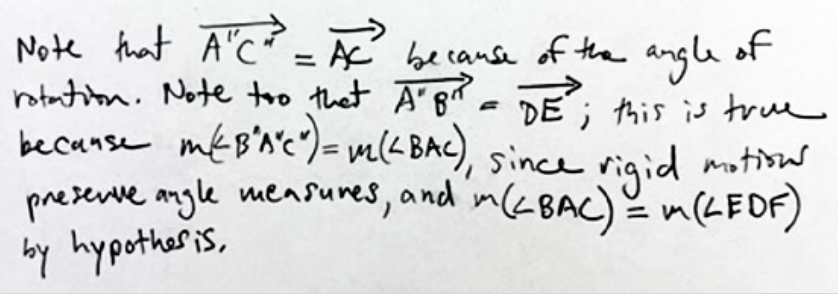 Note that A"C"→ = AC→ because of the angle of
rotation. Note too that A"B"→ = DE→; this is true
because m(∠B"A"C") = m(∠BAC), since rigid motions
preserve angle measures, and m(∠BAC) = m(∠EDF)
by hypothesis.